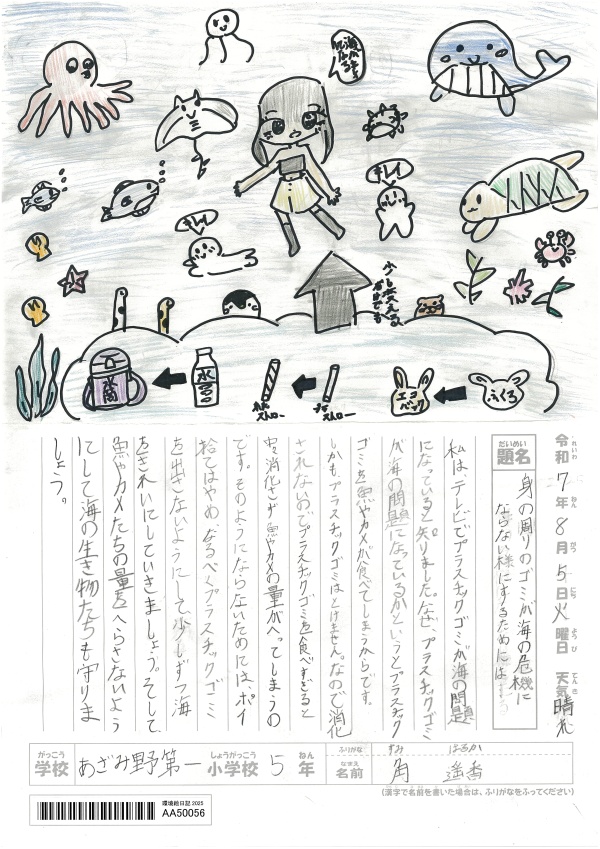 キレイ
キレイ
少し変えるだけでも
水筒
水
紙ストロー
プラストロー
エコバック
ふくろ
令和7年8月5日火曜日 天気 晴れ
れいわ ねん がつ にち ようび てんき
だいめい
題名
身の周りのゴミが海の危機に
ならない様にするためには
私は、テレビでプラスチックゴミが海の問題
になっていると知りました。なぜ、プラスチックゴミ
が海の問題になっているかというとプラスチック
ゴミを魚やカメが食べてしまうからです。
しかも、プラスチックゴミはとけません。なので消化
されないのでプラスチックゴミを食べすぎると
消化さず魚やカメの量がへってしまうの
です。そのようにならないためには、ポイ
捨てはやめ なるべくプラスチックゴミ
を出さないようにして少しずつ海
をきれいにしていきましょう。そして
魚やカメたちの量をへらさないよう
にして海の生き物たちも守りま
しょう。
がっこう しょうがっこう ねん
学校 あざみ野第一小学校 5年
ふりがな すみ はるか
なまえ
名前 角 遥香
(漢字で名前を書いた場合は、ふりがなをふってください)
環境絵日記 2025
AA50056